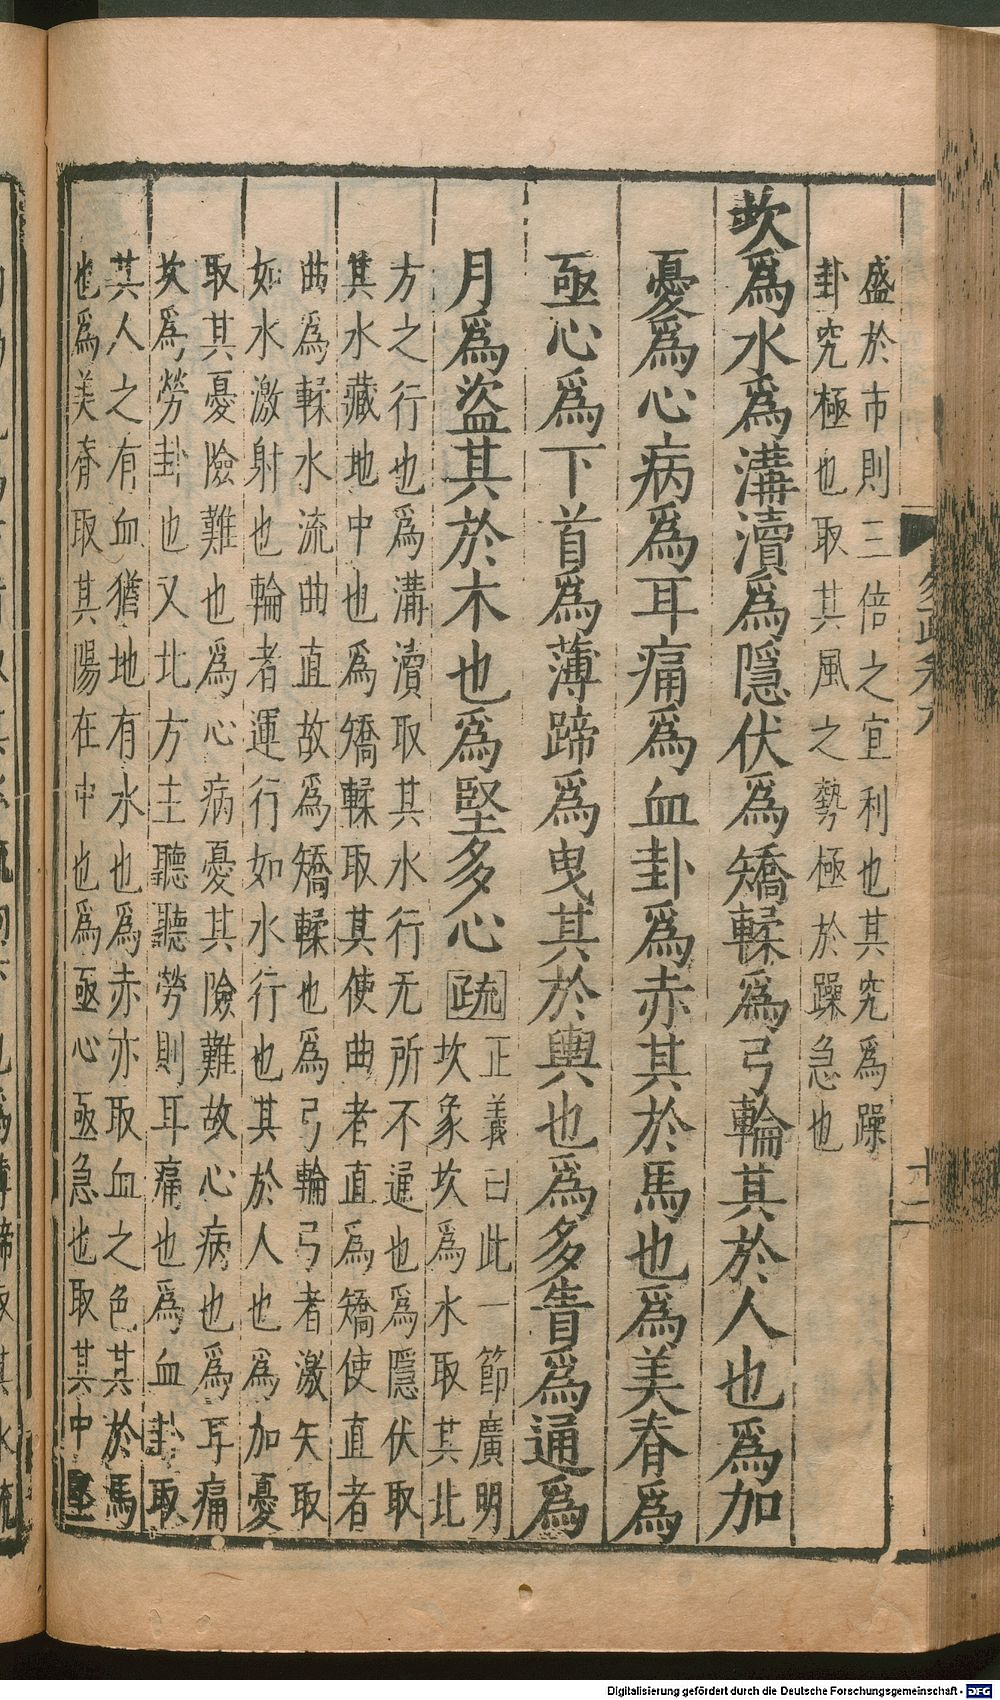 盛於市則三倍之宜利也其究爲躁
卦究極也取其風之勢極於躁急也
坎爲水爲溝瀆爲隱伏爲矯輮爲弓輪其於人也爲加
憂爲心病爲耳痛爲血卦爲赤其於馬也爲美脊爲
亟心爲下首爲薄蹄爲曳其於輿也爲多眚爲通爲
月爲盜其於木也爲堅多心
疏
正義曰此一節廣明
坎象坎爲水取其北
方之行也爲溝瀆取其水行无所不通也爲隱伏取
其水藏地中也爲矯輮取其使曲者直爲矯使直者
曲爲輮水流曲直故爲矯輮也爲弓輪弓者激矢取
如水激射也輪者運行如水行也其於人也爲加憂
取其憂險難也爲心病憂其險難故心病也爲耳痛
坎爲勞卦也又北方主聽聽勞則耳痛也爲血卦取
其人之有血猶地有水也爲赤亦取血之色其於馬
也爲美脊取其陽在中也爲亟心亟急也取其中堅
Digitalisierung gefördert durch die Deutsche Forschungsgemeinschaft - DFG